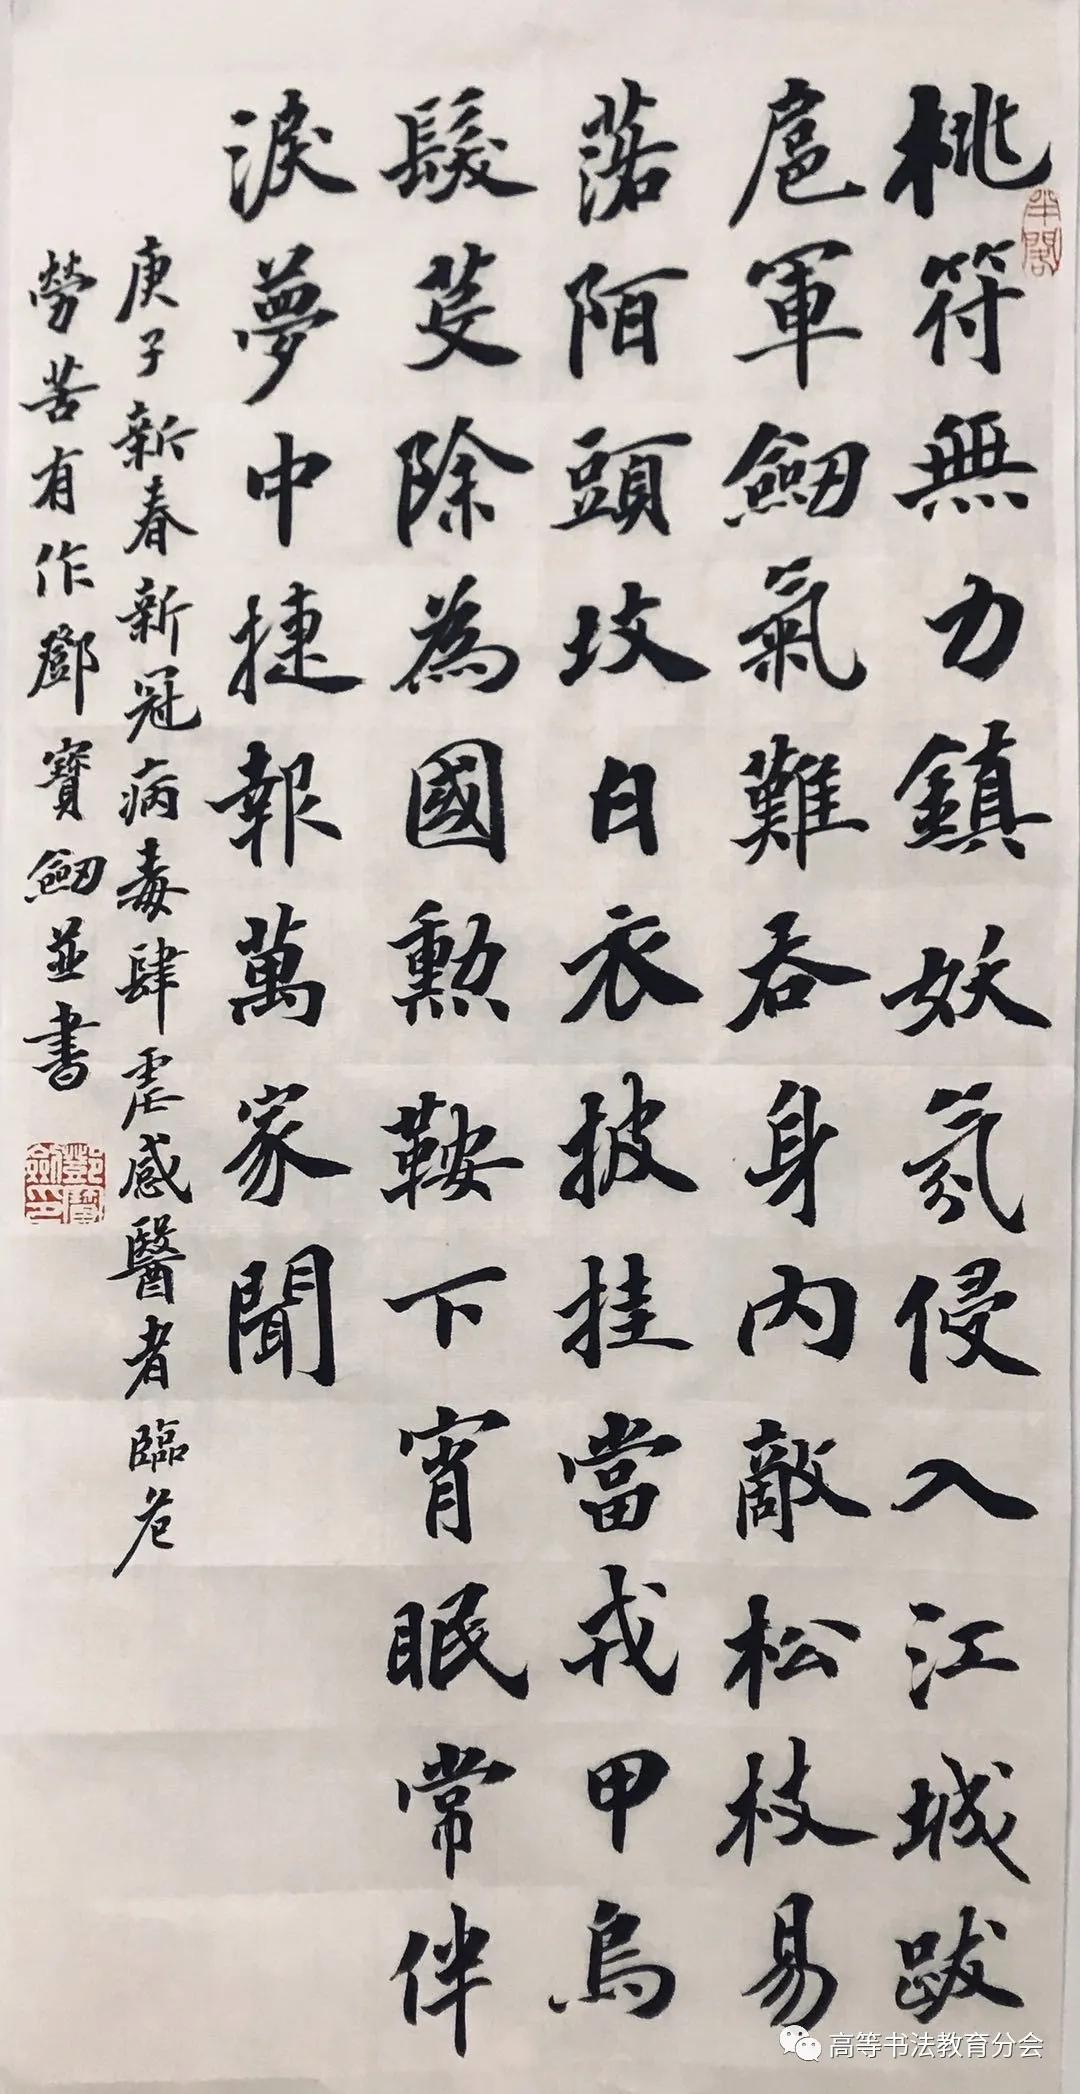 桃符無力鎮妖氛侵入江城跋
扈軍劒氣難吞身內敵松枝易
落陌頭坟白衣披挂當戎甲烏
髮芟除為國勲鞍下宵眠常伴
淚夢中捷報萬家聞
庚子新春新冠病毒肆虐感醫者臨危
勞苦有作鄧寶劒並書
半閣
鄧寶劍印
高等书法教育分会